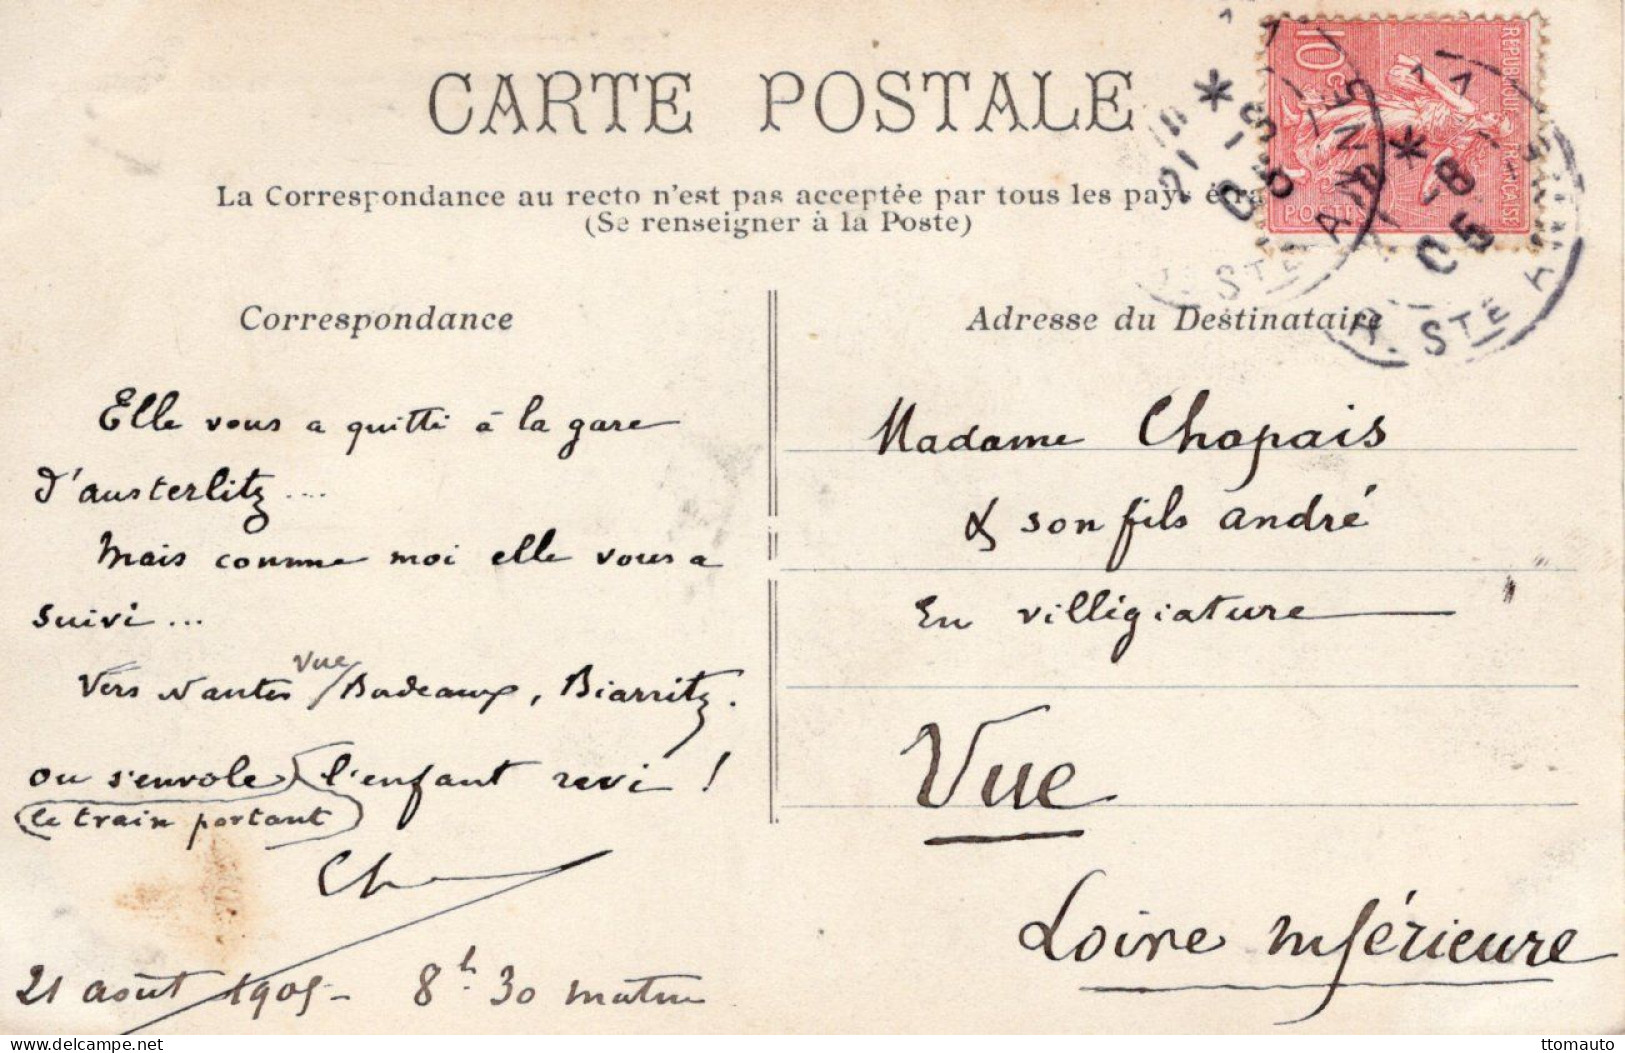 CARTE POSTALE
La Correspondance au recto n'est pas acceptée par tous les pays étra
(Se renseigner à la Poste)
10 c
REPUBLIQUE FRANÇAISE
POSTES
STE ANNE
21 - 8
05
R. STE A
- 8
05
Correspondance
Elle vous a quitté à la gare
d'austerlitz....
Mais comme moi elle vous a
suivi...
Vers Nantes Vue / Bordeaux, Biarritz.
ou s'envole l'enfant revi !
le train portant
Ch
21 août 1905 - 8h. 30 matin
Adresse du Destinataire
Madame Chopais
& son fils andré
En villigiature
Vue
Loire Inférieure
Delcampe.net
ttomauto